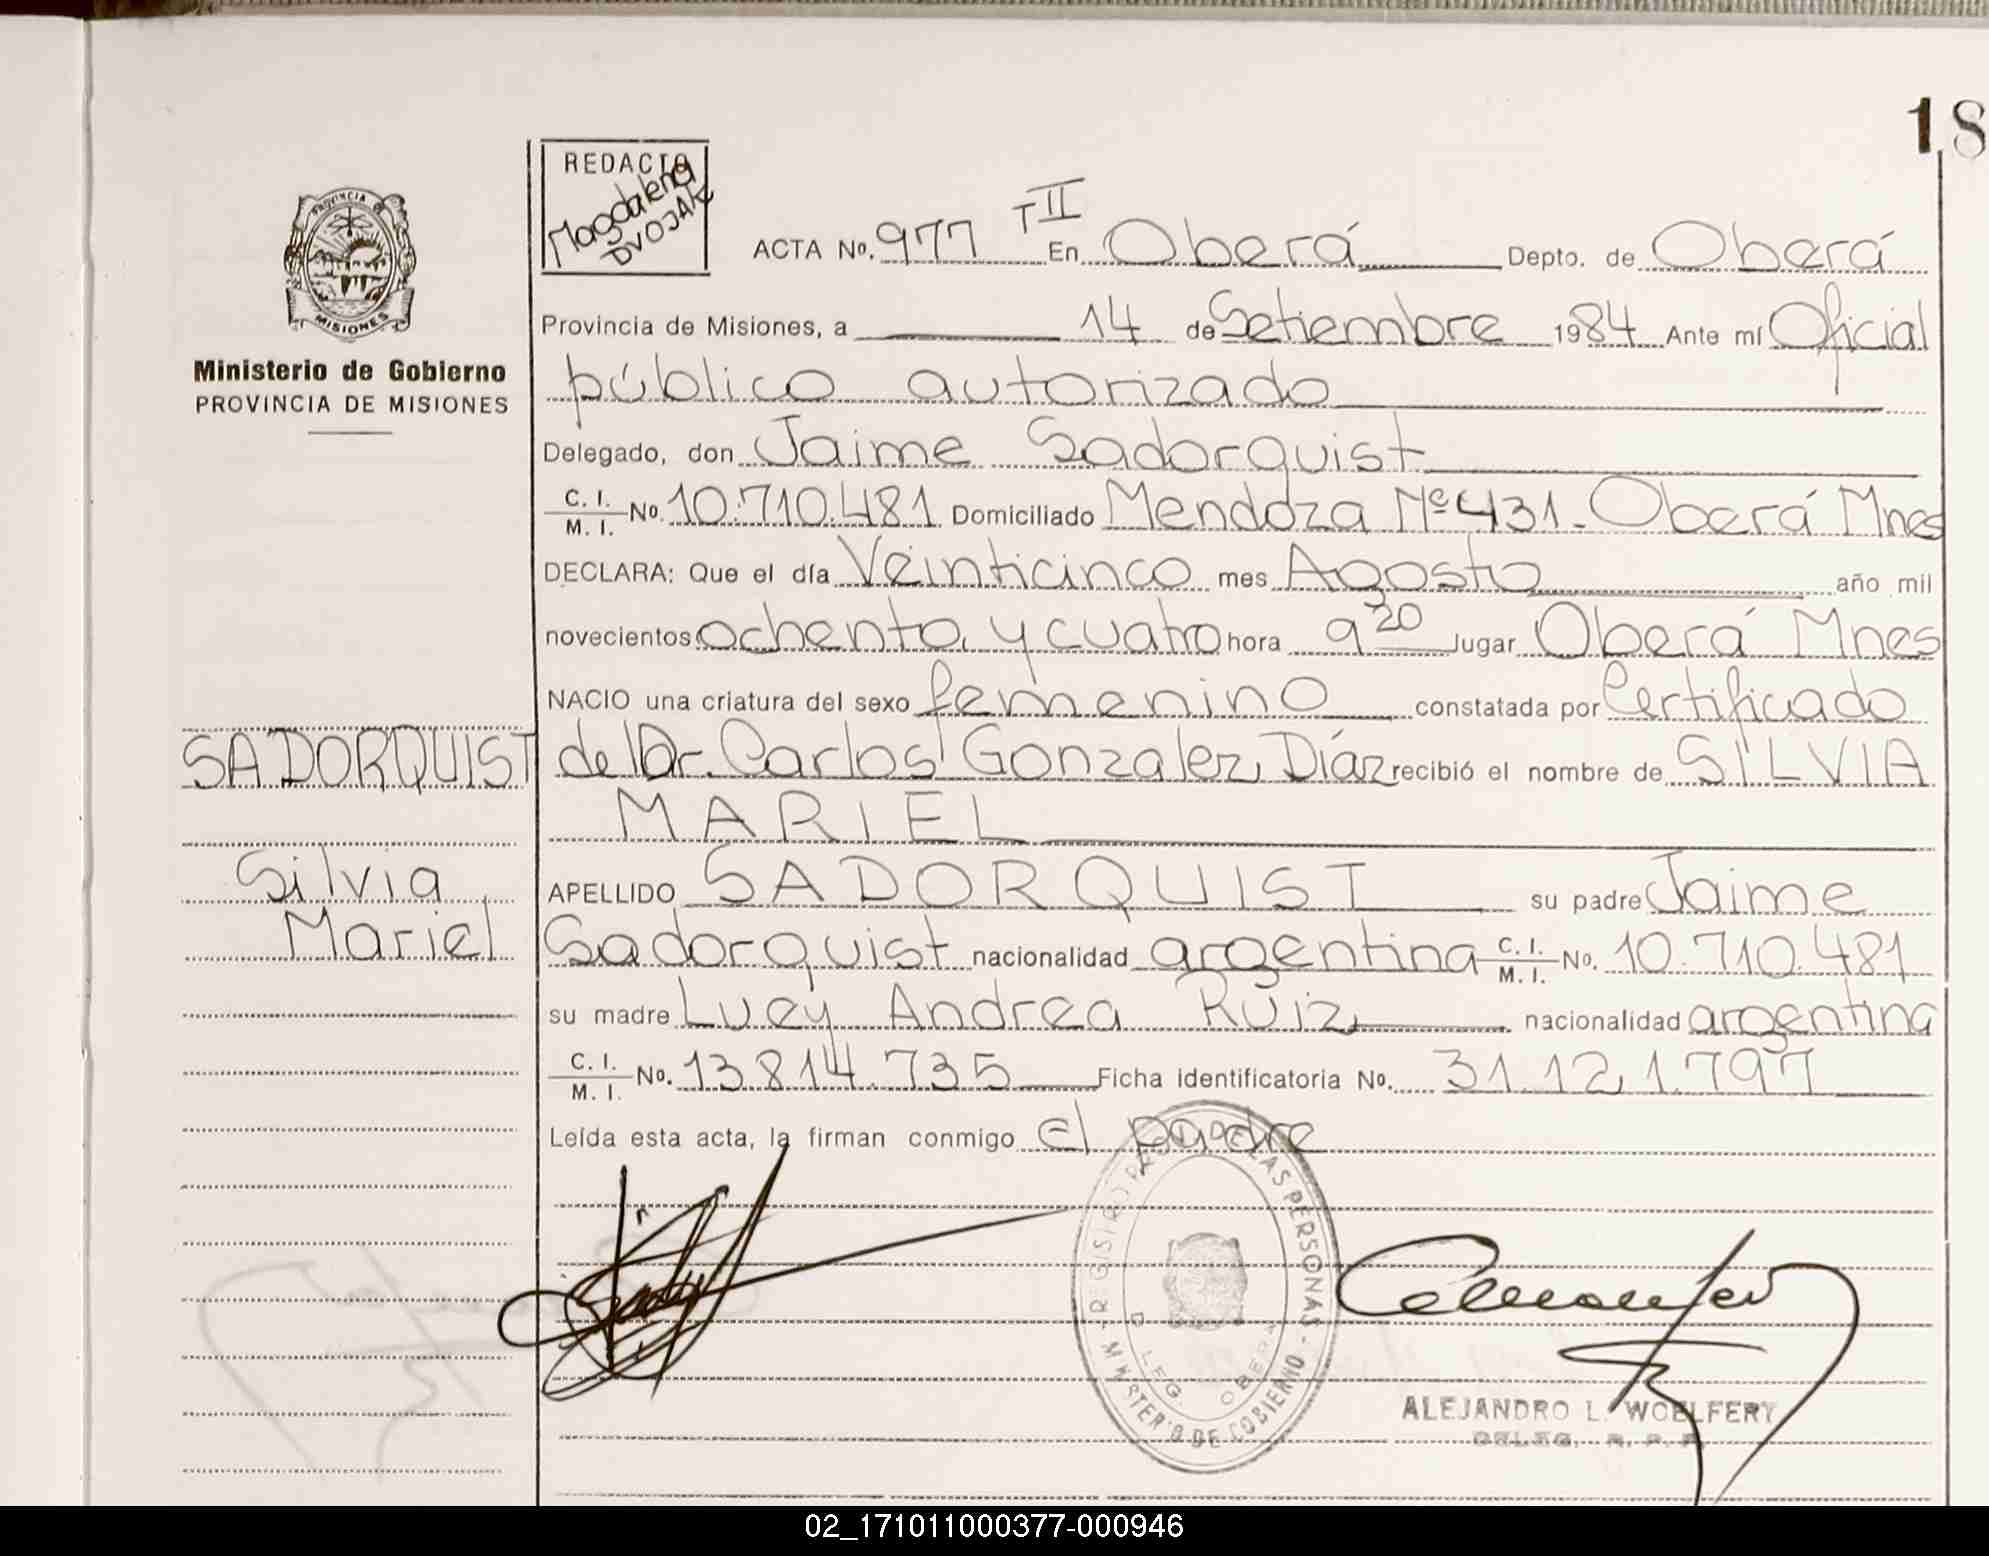 18
PROVINCIA DE
MISIONES
Ministerio de Gobierno
PROVINCIA DE MISIONES
REDACTO
Magdalena
DVOJAK
ACTA No. 977 T II En Oberá Depto. de Oberá
Provincia de Misiones, a 14 de Setiembre 1984 Ante mí Oficial
público autorizado
Delegado, don Jaime Sadorquist
C. I. / M. I. No. 10.710.481 Domiciliado Mendoza Nº 431 - Oberá Mnes
DECLARA: Que el día Veinticinco mes Agosto año mil
novecientos ochenta y cuatro hora 9 20 lugar Oberá Mnes
NACIO una criatura del sexo femenino constatada por Certificado
SADORQUIST
del Dr. Carlos Gonzalez Díaz recibió el nombre de SILVIA
MARIEL
Silvia
Mariel
APELLIDO SADORQUIST su padre Jaime
Sadorquist nacionalidad argentina C. I. / M. I. No. 10.710.481
su madre Lucy Andrea Ruiz nacionalidad argentina
C. I. / M. I. No. 13.814.735 Ficha identificatoria No. 31.121.797
Leída esta acta, la firman conmigo el padre
REGISTRO PROV. DE LAS PERSONAS - MINISTERIO DE GOBIERNO -
DELEG. OBERA
ALEJANDRO L. WOELFERT
DELEG. R. P. P.
02_171011000377-000946